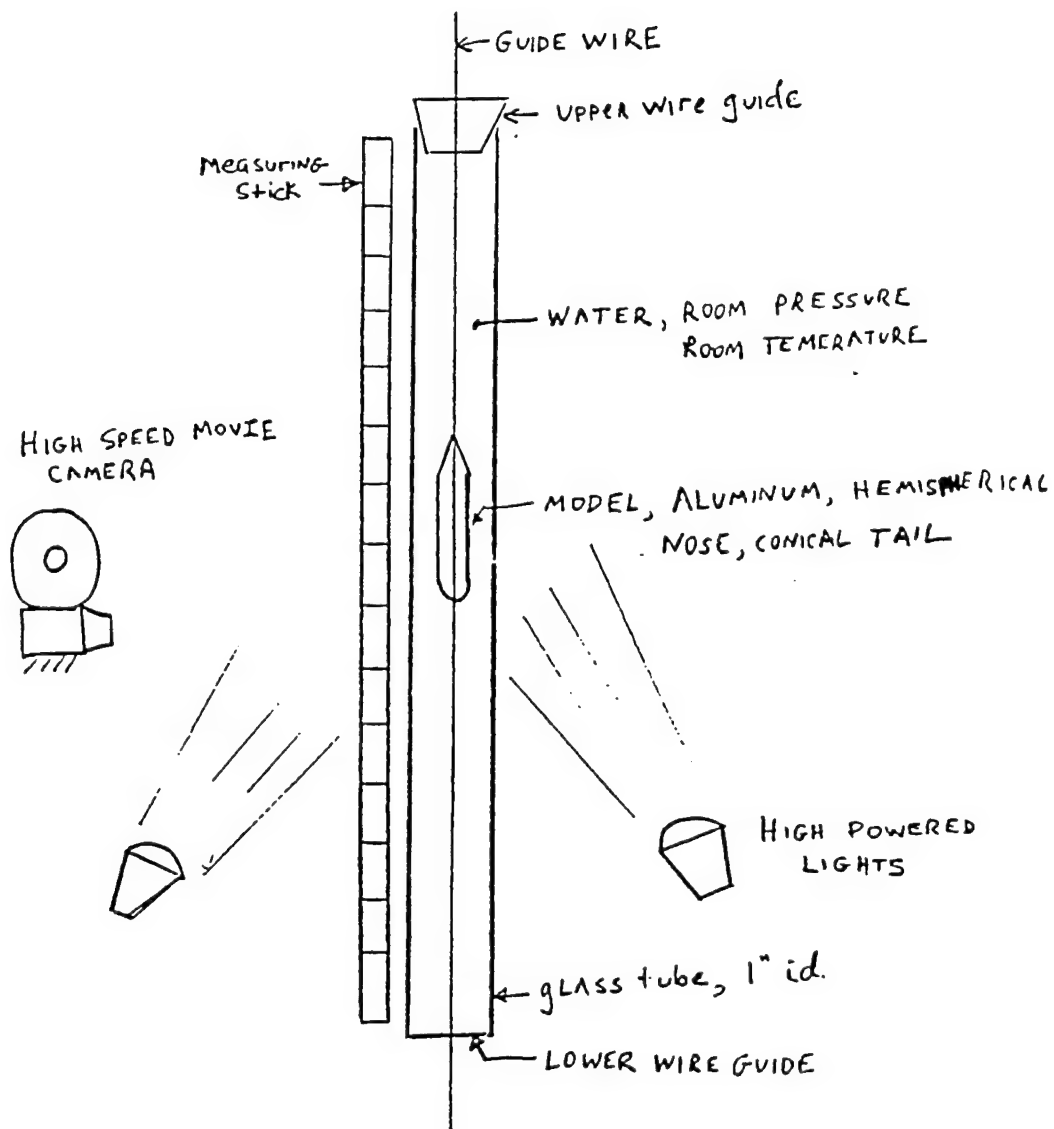 GUIDE WIRE
UPPER wire guide
MeASURING
Stick
WATER, ROOM PRESSURE
ROOM TEMERATURE
HIGH SPEED MOVIE
CAMERA
MODEL, ALUMINUM, HEMISPHERICAL
NOSE, CONICAL TAIL
HIGH POWERED
LIGHTS
gLASS tube, 1" id.
LOWER WIRE GUIDE